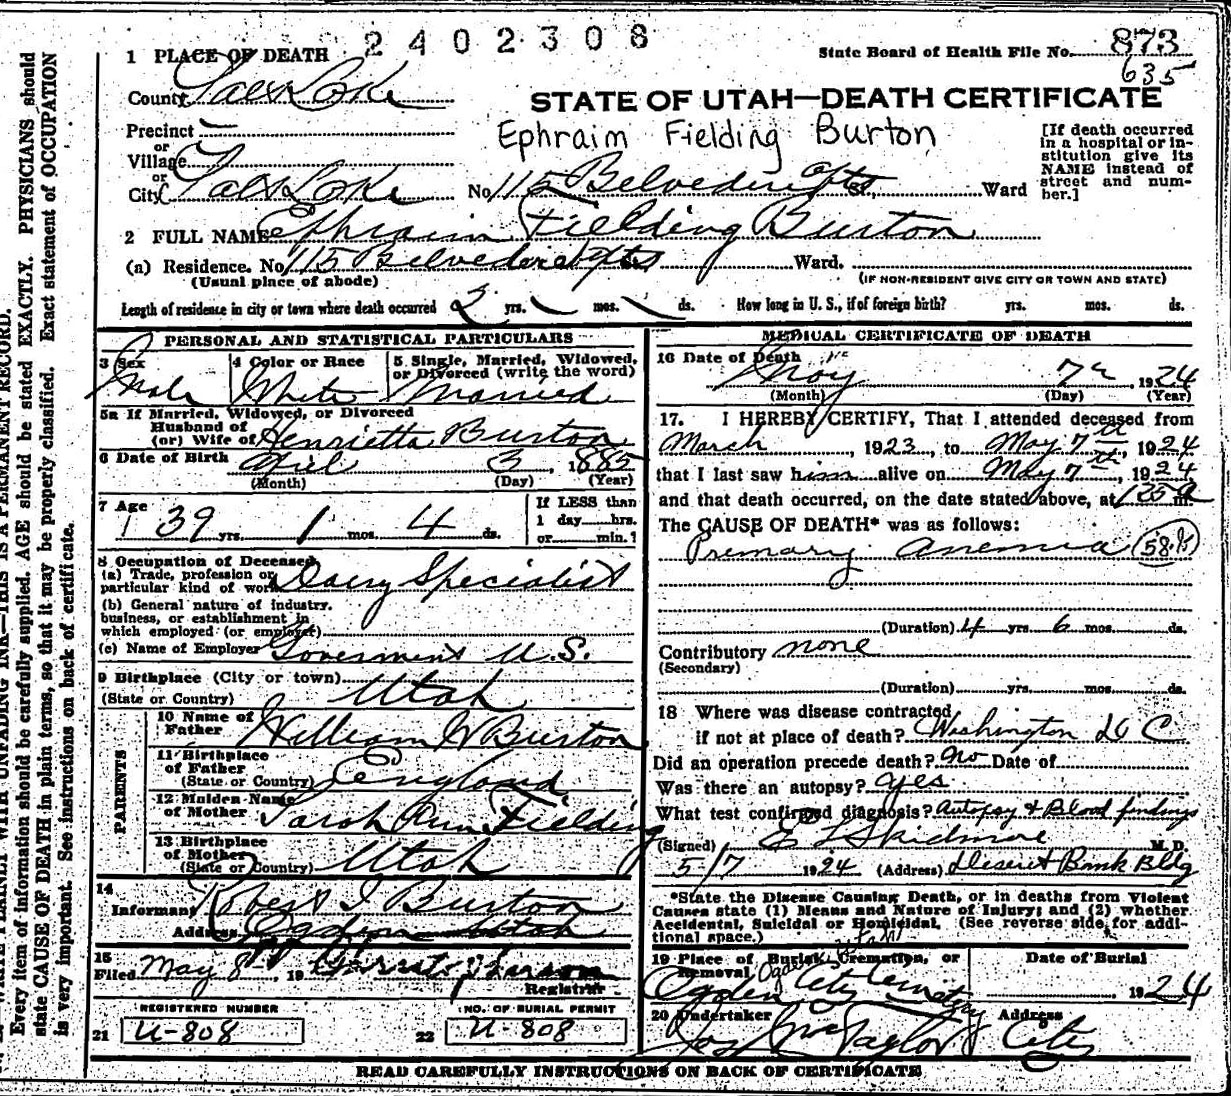 2402308
State Board of Health File No. 873
635
1 PLACE OF DEATH
County Salt Lake
STATE OF UTAH—DEATH CERTIFICATE
Ephraim Fielding Burton
Precinct
or
Village
or
City Salt Lake No. 115 Belvedere Apts St., Ward
[If death occurred
in a hospital or in-
stitution give its
NAME instead of
street and num-
ber.]
2 FULL NAME Ephraim Fielding Burton
(a) Residence. No. 115 Belvedere Apts St. Ward.
(Usual place of abode) (IF NON-RESIDENT GIVE CITY OR TOWN AND STATE)
Length of residence in city or town where death occurred 2 yrs. mos. ds. How long in U. S., if of foreign birth? yrs. mos. ds.
PERSONAL AND STATISTICAL PARTICULARS
3 Sex 4 Color or Race 5 Single, Married, Widowed,
or Divorced (write the word)
Male White Married
5a If Married, Widowed, or Divorced
Husband of
(or) Wife of Henrietta Burton
6 Date of Birth April 3, 1885
(Month) (Day) (Year)
7 Age If LESS than
39 yrs. 1 mos. 4 ds. 1 day hrs.
or min.?
8 Occupation of Deceased
(a) Trade, profession or
particular kind of work Dairy Specialist
(b) General nature of industry.
business, or establishment in
which employed (or employer)
(c) Name of Employer Goverment U.S.
9 Birthplace (City or town)
(State or Country) Utah
PARENTS
10 Name of
Father William W Burton
11 Birthplace
of Father
(State or Country) England
12 Maiden Name
of Mother Sarah Ann Fielding
13 Birthplace
of Mother
(State or Country) Utah
14
Informant Robert I Burton
Address Ogden Utah
15
Filed May 8 19
Registrar
REGISTERED NUMBER NO. OF BURIAL PERMIT
21 U-808 22 U-808
MEDICAL CERTIFICATE OF DEATH
16 Date of Death
May 7th, 1924
(Month) (Day) (Year)
17. I HEREBY CERTIFY, That I attended deceased from
March, 1923, to May 7th, 1924
that I last saw him alive on May 7th, 1924
and that death occurred, on the date stated above, at 1 55 a m.
The CAUSE OF DEATH* was as follows:
Primary anemia
(Duration) 4 yrs 6 mos. ds.
Contributory none
(Secondary)
(Duration) yrs. mos. ds.
18 Where was disease contracted
if not at place of death? Washington D C
Did an operation precede death? no Date of
Was there an autopsy? yes
What test confirmed diagnosis? Autopsy & Blood findings
(Signed) E L Skidmore M. D.
5/7 1924 (Address) Deseret Bank Bldg
*State the Disease Causing Death, or in deaths from Violent
Causes state (1) Means and Nature of Injury; and (2) whether
Accidental, Suicidal or Homicidal. (See reverse side for addi-
tional space.)
19 Place of Burial, Cremation, or Date of Burial
Removal Ogden Utah
Ogden City Cemetery 1924
20 Undertaker Address
Jos Wm Taylor City
READ CAREFULLY INSTRUCTIONS ON BACK OF CERTIFICATE
WRITE PLAINLY WITH UNFADING INK—THIS IS A PERMANENT RECORD.
Every item of information should be carefully supplied. AGE should be stated EXACTLY. PHYSICIANS should
state CAUSE OF DEATH in plain terms, so that it may be properly classified. Exact statement of OCCUPATION
is very important. See instructions on back of certificate.